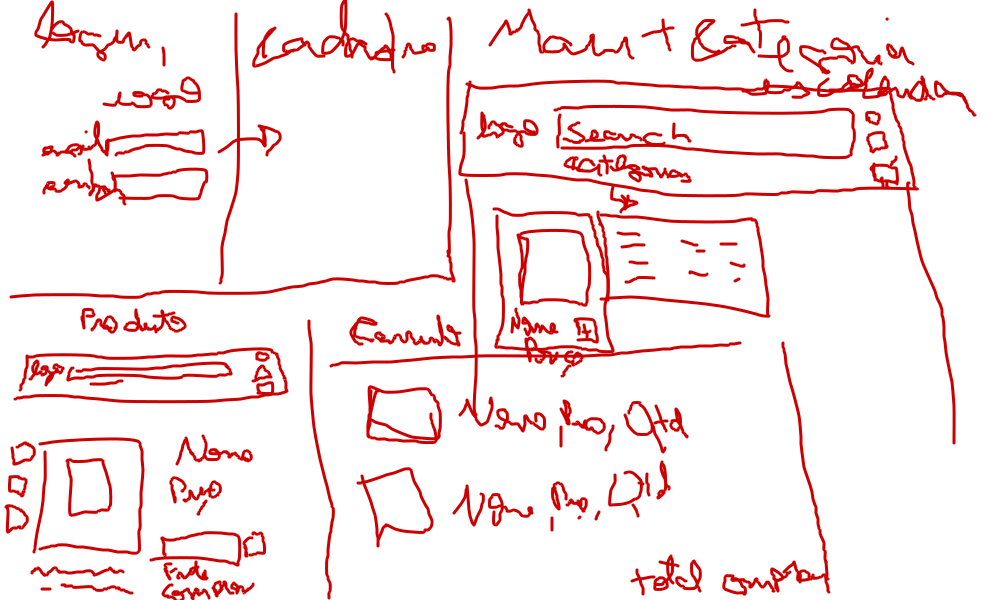 Login,
logo
email
Cadastro
Main + Categoria
logo
Search
categorias
Nome
Preço
Produto
logo
Nome
Preço
Comprar
Carrinho
Nome, Preço, Qtd
Nome, Preço, Qtd
total comprar